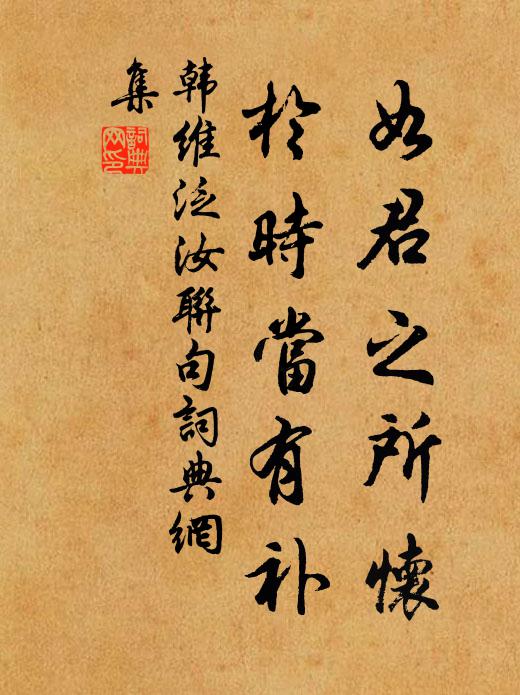 如君之所懷
於時當有补
韩维泛汝聯句詞典網
集
詞典网印